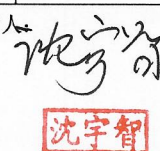 沈宇智
沈宇智